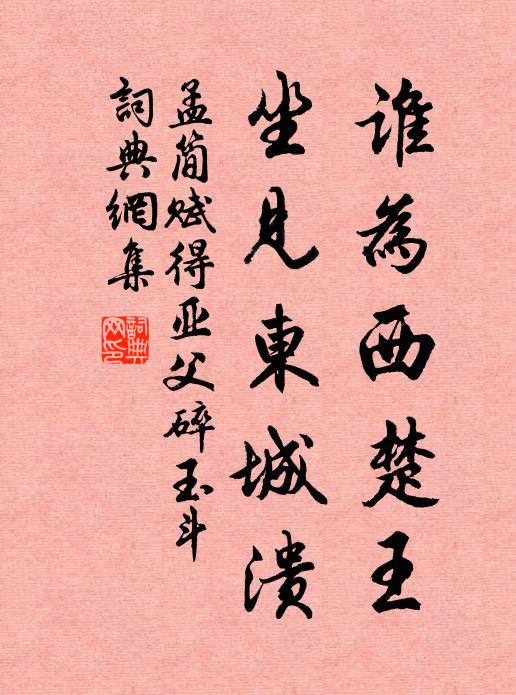 誰為西楚王
坐見東城潰
孟简賦得亚父碎玉斗
詞典網集
詞典
网印